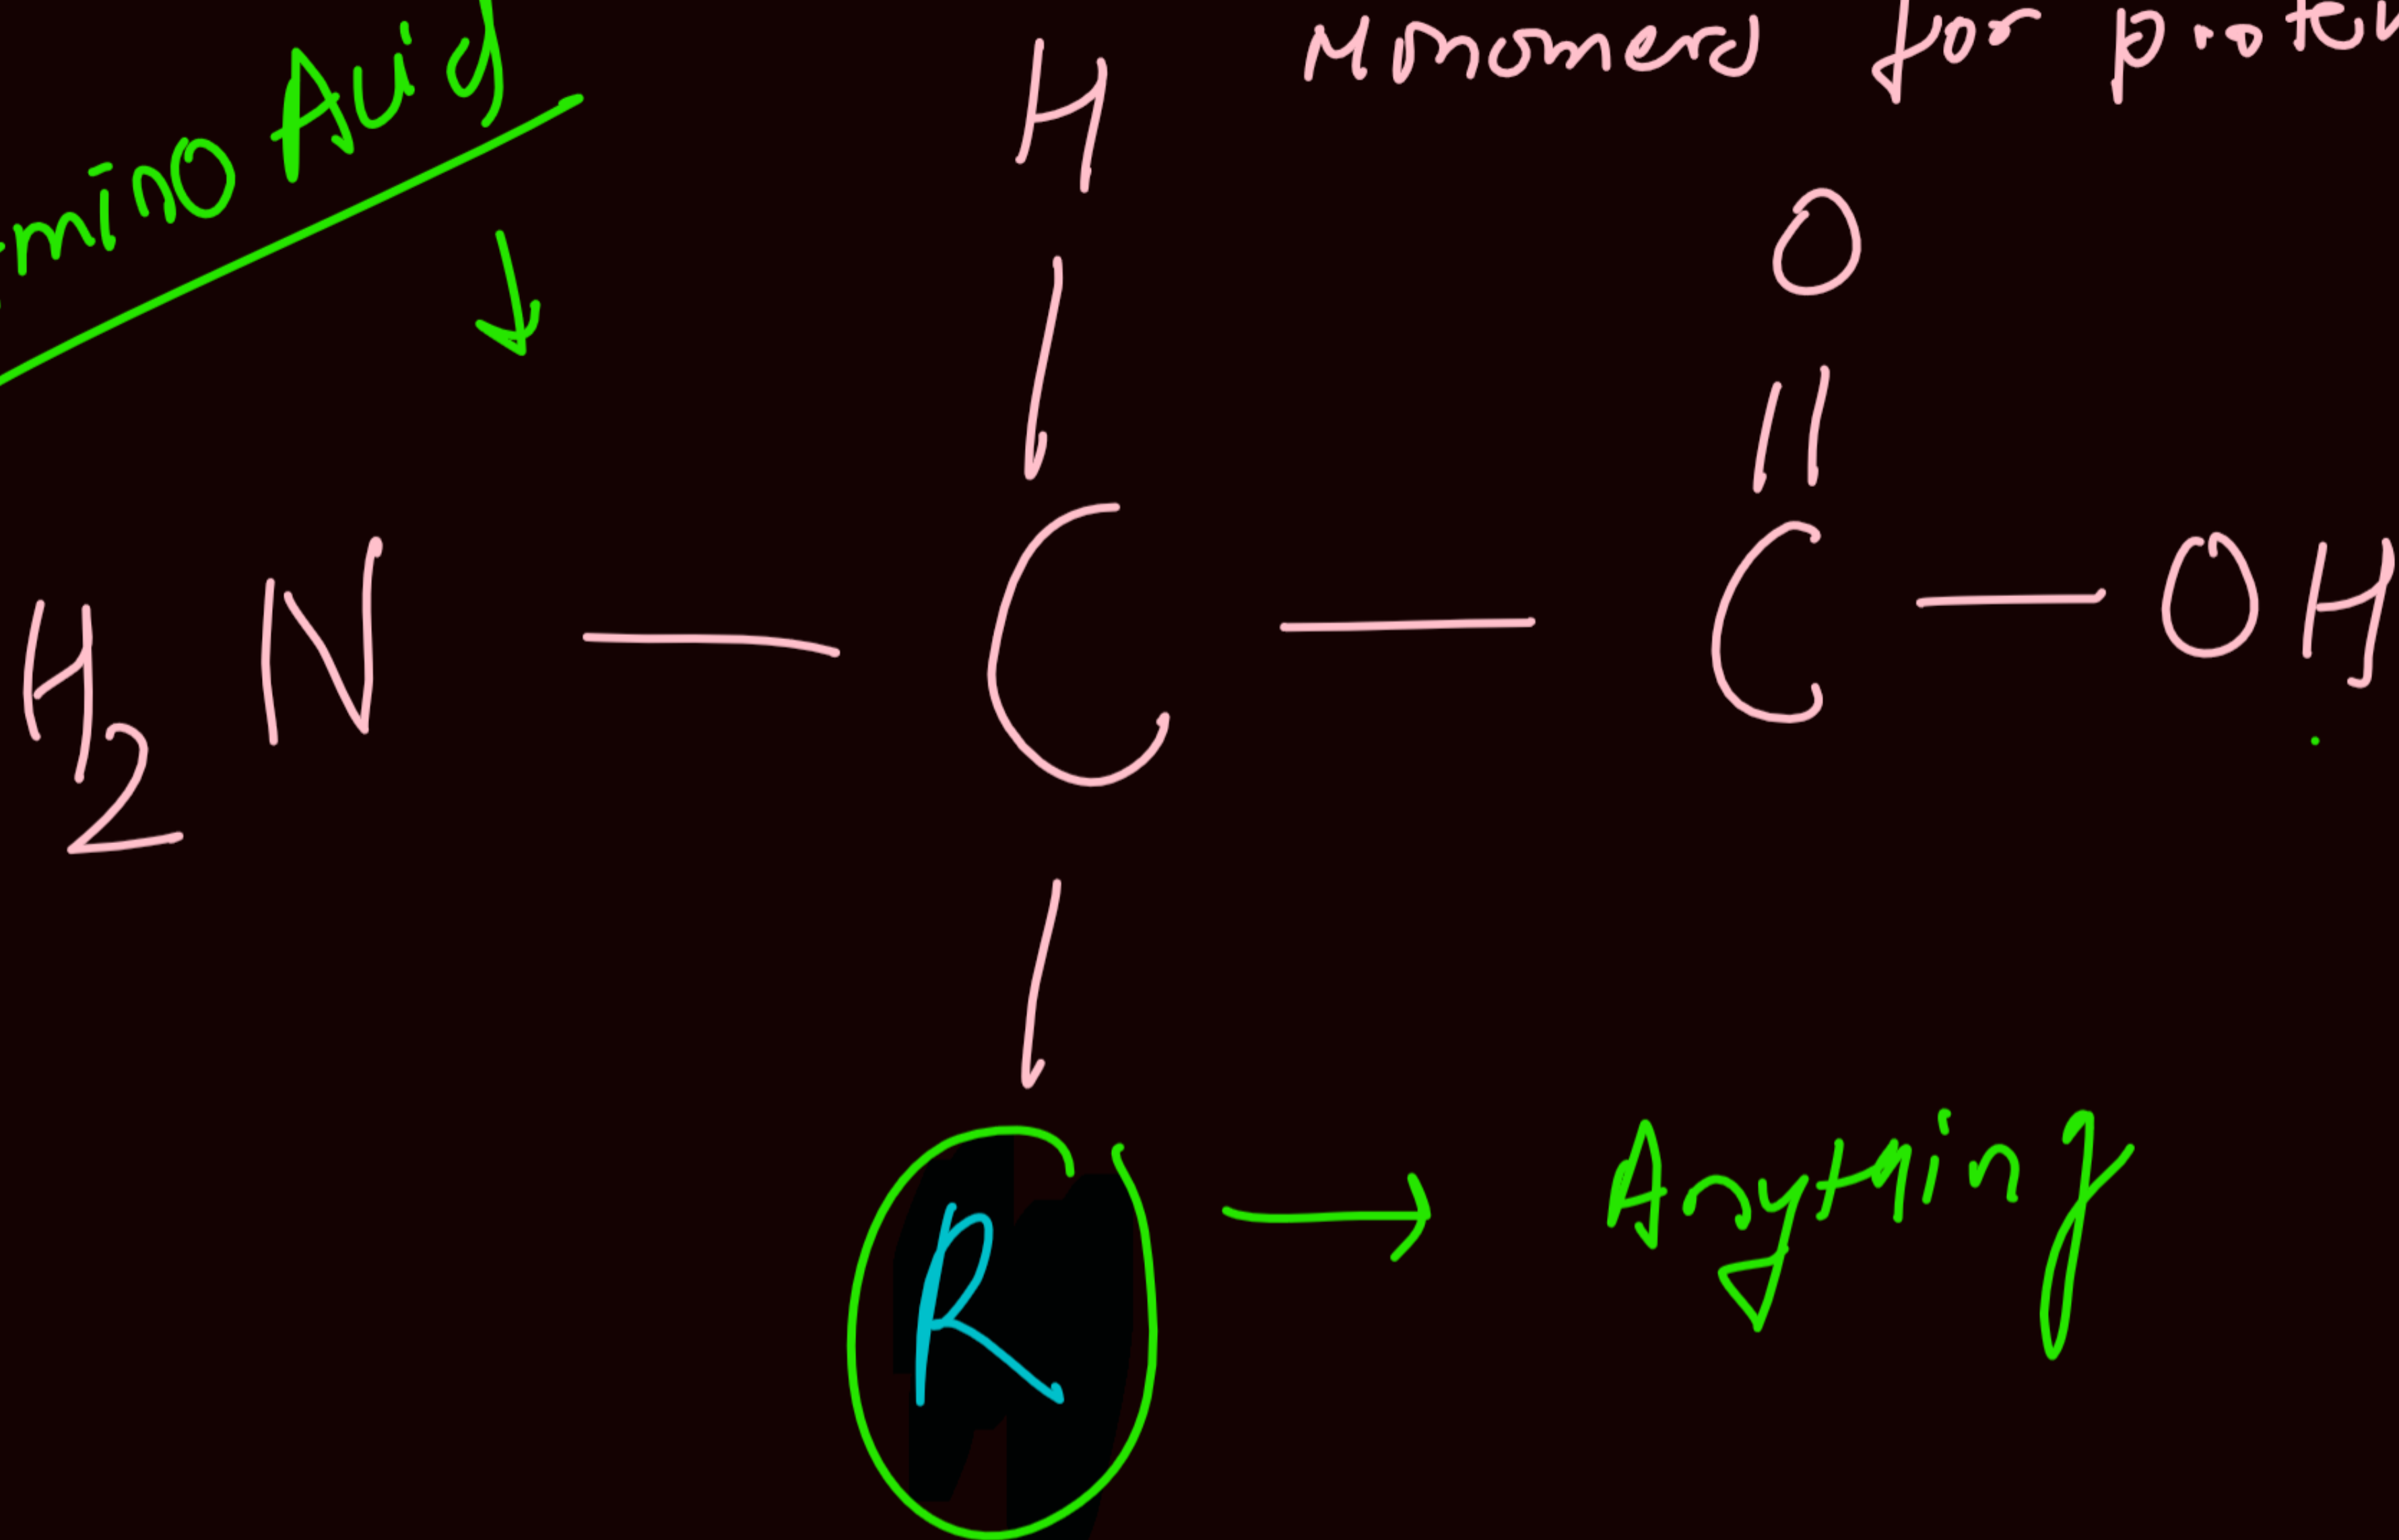 mino Acid
Monomers for protei
H
O
||
H2N — C — C — OH
R → Anything